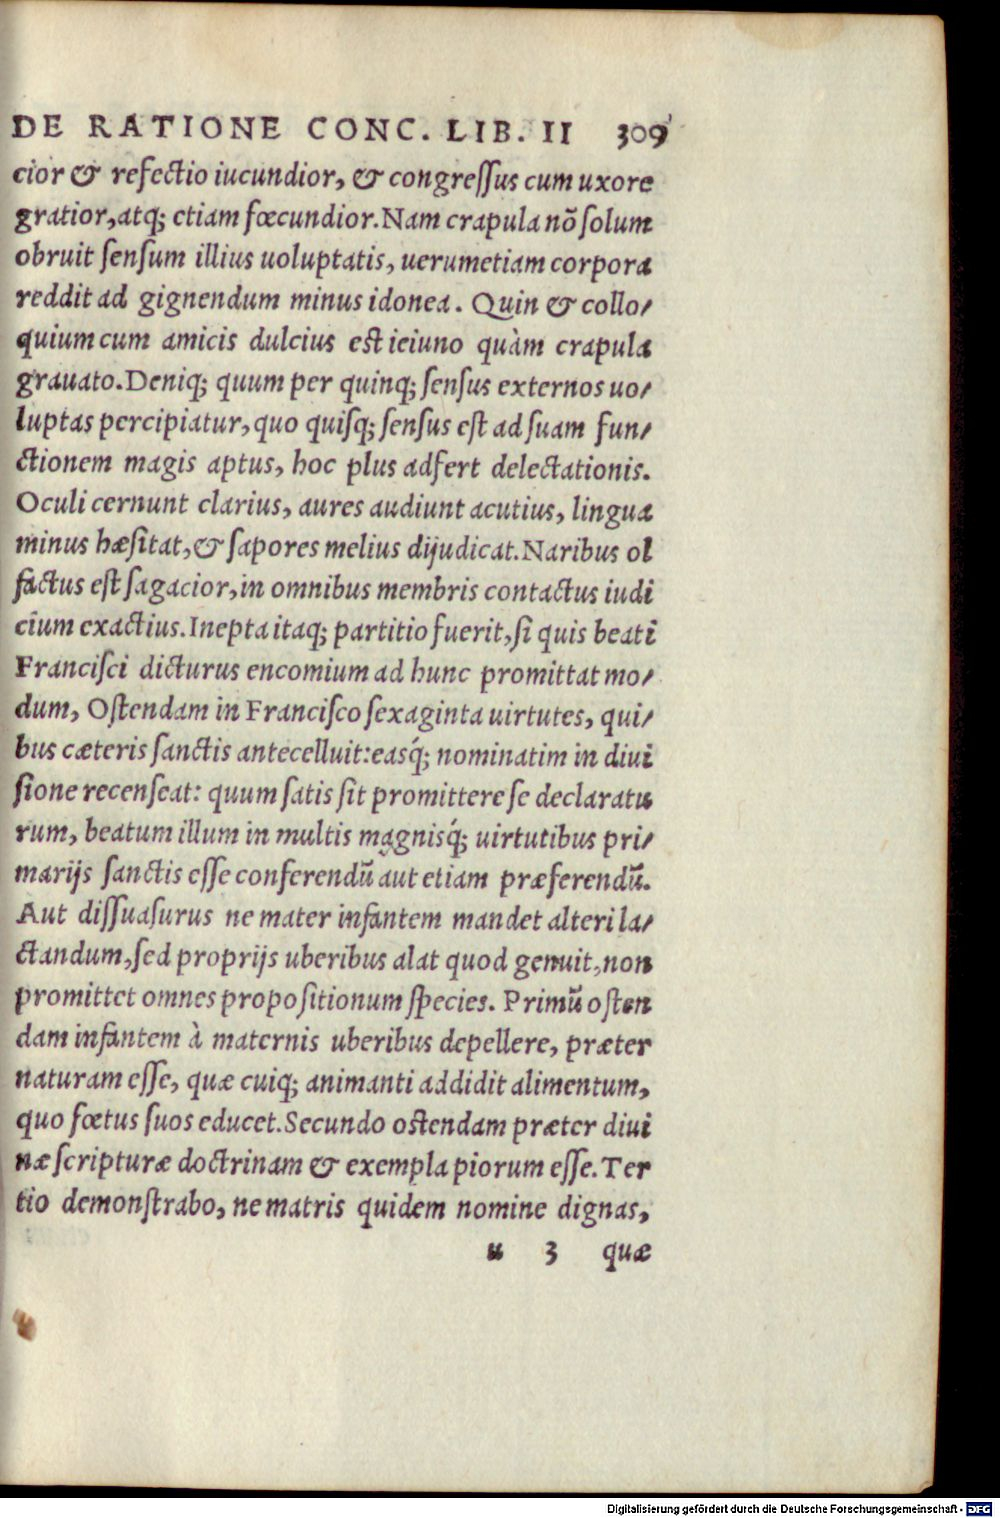 DE RATIONE CONC. LIB. II 309
cior & refectio iucundior, & congreſſus cum uxore
gratior, atq; etiam fœcundior. Nam crapula nõ ſolum
obruit ſenſum illius uoluptatis, uerumetiam corpora
reddit ad gignendum minus idonea. Quin & collo/
quium cum amicis dulcius est ieiuno quàm crapula
grauato. Deniq; quum per quinq; ſenſus externos uo/
luptas percipiatur, quo quiſq; ſenſus eſt ad ſuam fun/
ctionem magis aptus, hoc plus adfert delectationis.
Oculi cernunt clarius, aures audiunt acutius, lingua
minus hæſitat, & ſapores melius dijudicat. Naribus ol
factus eſt ſagacior, in omnibus membris contactus iudi
cium exactius. Inepta itaq; partitio fuerit, ſi quis beati
Franciſci dicturus encomium ad hunc promittat mo/
dum, Oſtendam in Franciſco ſexaginta uirtutes, qui/
bus cæteris ſanctis antecelluit: easq́; nominatim in diui
ſione recenſeat: quum ſatis ſit promittere ſe declaratu
rum, beatum illum in multis magnisq́; uirtutibus pri/
marijs ſanctis eſſe conferendũ aut etiam præferendũ.
Aut diſſuaſurus ne mater infantem mandet alteri la/
ctandum, ſed proprijs uberibus alat quod genuit, non
promittet omnes propoſitionum ſpecies. Primũ oſten
dam infantem à maternis uberibus depellere, præter
naturam eſſe, quæ cuiq; animanti addidit alimentum,
quo fœtus ſuos educet. Secundo ostendam præter diui
næ ſcripturæ doctrinam & exempla piorum eſſe. Ter
tio demonſtrabo, ne matris quidem nomine dignas,
u 3 quæ
Digitalisierung gefördert durch die Deutsche Forschungsgemeinschaft - DFG